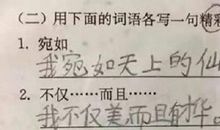 （二）用下面的词语各写一句精
1. 宛如
我宛如天上的仙
2. 不仅……而且……
我不仅美而且有才华